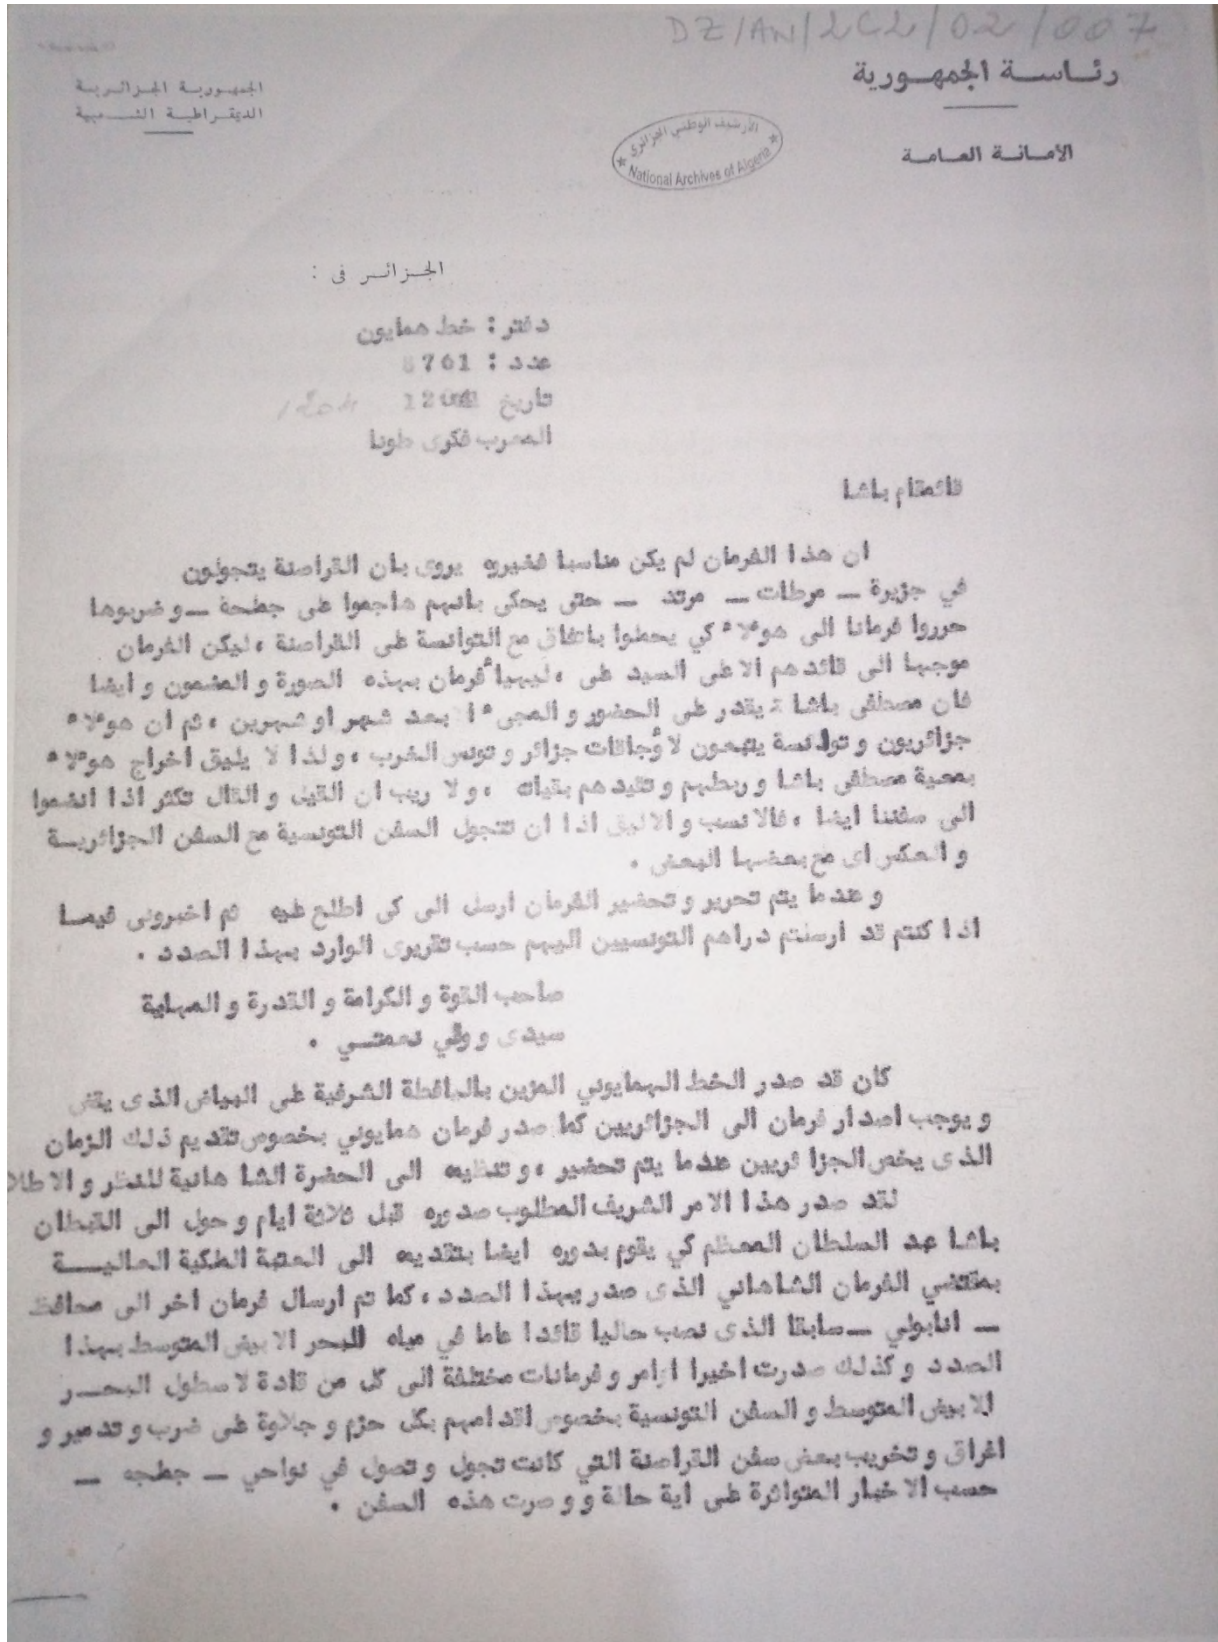 DZ/AN/2C2/02/007
رئاسة الجمهورية
الجمهورية الجزائرية
الديمقراطية الشعبية
الأرشيف الوطني الجزائري
National Archives of Algeria
الامانة العامة
الجزائر في :
دفتر : خط همايون
عدد : 8761
تاريخ 1204 1204
المعرب فكرى طونا
قائمقام باشا
ان هذا الفرمان لم يكن مناسبا فغيروه يروى بان القراصنة يتجولون
في جزيرة ـ مرطات ـ مرتد ـ حتى يحكى بانهم هاجموا على جطحة ـ وضربوها
حرروا فرمانا الى هولاء كي يحطوا باتفاق مع التوانسة على القراصنة ، ليكن الفرمان
موجها الى قائدهم الاعلى السيد على ، ليهيأ فرمان بهذه الصورة و المضمون و ايضا
فان مصطفى باشا يقدر على الحضور و المجىء الا بعد شهر او شهرين ، ثم ان هولاء
جزائريون و توانسة يتبعون لاوجاقات جزائر و تونس الغرب ، ولذا لا يليق اخراج هولاء
بمعية مصطفى باشا و ربطهم و تقيدهم بقيأته ، و لا ريب ان القيل و القال تكثر اذا انضموا
الى سفننا ايضا ، فالانسب و الاليق اذا ان تتجول السفن التونسية مع السفن الجزائرية
و العكس اى مع بعضها البعض .
و عندما يتم تحرير و تحضير الفرمان ارسل الى كى اطلع عليه ثم اخبرونى فيما
اذا كنتم قد ارسلتم دراهم التونسيين اليهم حسب تقريرى الوارد بهذا الصدد .
صاحب القوة و الكرامة و القدرة و المهابة
سيدى و وفي نعمتي .
كان قد صدر الخط الهمايوني المزين بالافطة الشرفية على البياض الذى يقضى
و يوجب اصدار فرمان الى الجزائريين كما صدر فرمان همايوني بخصوص تقديم ذلك الزمان
الذى يخص الجزائريين عندما يتم تحضير ، و تنظيمه الى الحضرة الشاهانية للنظر و الاطلا
لقد صدر هذا الامر الشريف المطلوب صدوره قبل ثلاثة ايام و حول الى القبطان
باشا عبد السلطان المعظم كي يقوم بدوره ايضا بتقديمه الى العتبة الملكية العاليـــة
بمقتضي الفرمان الشاهاني الذى صدر بهذا الصدد ، كما تم ارسال فرمان اخر الى محافظ
ـ انابولي ـ سابقا الذى نصب حاليا قائدا عاما في مياه البحر الابيض المتوسط بهذا
الصدد و كذلك صدرت اخيرا اوامر و فرمانات مختلفة الى كل من قادة لاسطول البحــر
الابيض المتوسط و السفن التونسية بخصوص اقدامهم بكل حزم و جلاوة على ضرب و تدمير و
اغراق و تخريب بعض سفن القراصنة التي كانت تجول و تصول في نواحي ـ جطجه ـ
حسب الاخبار المتواترة على اية حالة و صرت هذه السفن .